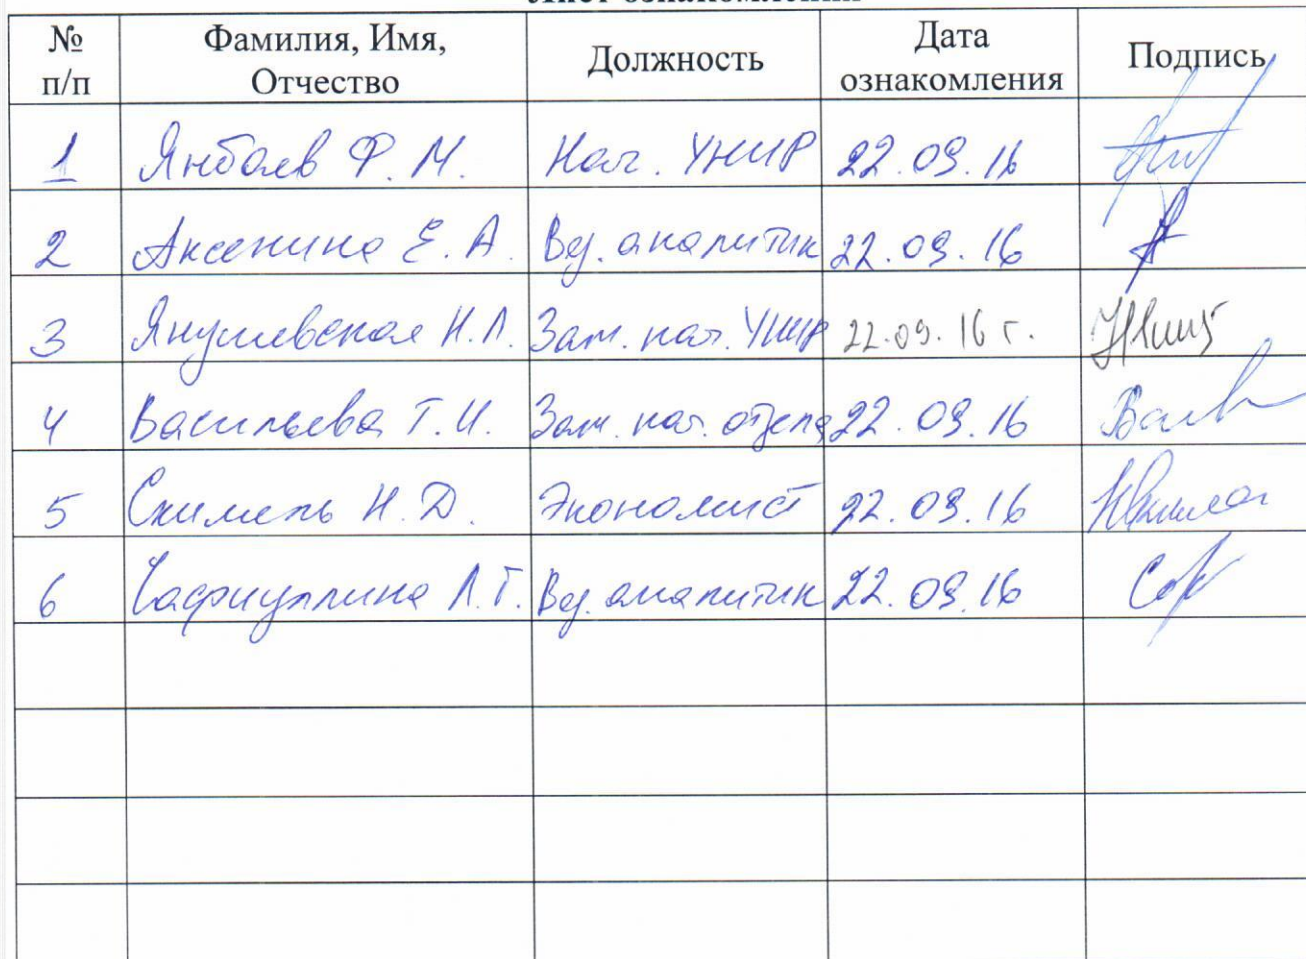 Лист ознакомления
№ п/п Фамилия, Имя, Отчество Должность Дата ознакомления Подпись
1 Янбаев Ф. М. Нач. УНИР 22.09.16
2 Аксенина Е. А. Вед. аналитик 22.09.16
3 Янушевская Н. Л. Зам. нач. УНИР 22.09.16 г.
4 Васильева Т. И. Зам. нач. отдела 22.09.16
5 Н. Д. Экономист 22.09.16
6 Сафиуллина Л. Г. Вед. аналитик 22.09.16